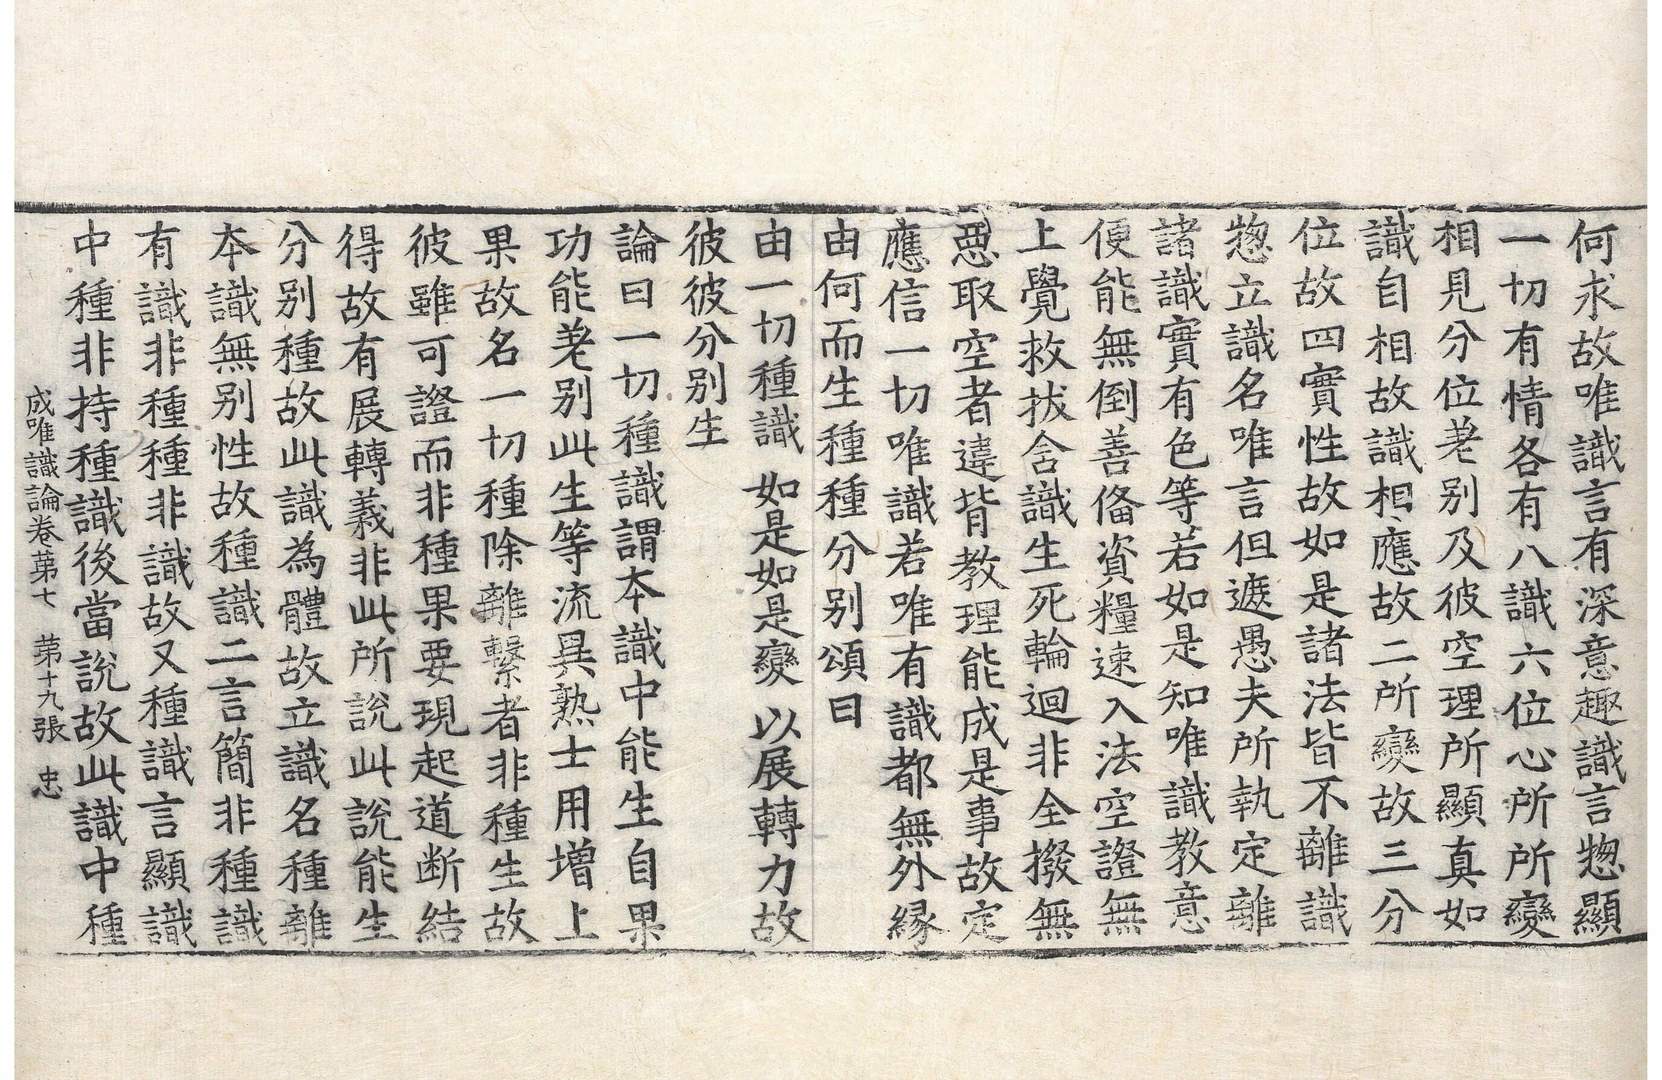 何求故唯識言有深意趣識言惣顯
一切有情各有八識六位心所所變
相見分位差別及彼空理所顯真如
識自相故識相應故二所變故三分
位故四實性故如是諸法皆不離識
惣立識名唯言但遮愚夫所執定離
諸識實有色等若如是知唯識教意
便能無倒善俻資糧速入法空證無
上覺救拔含識生死輪迴非全撥無
惡取空者違背教理能成是事故定
應信一切唯識若唯有識都無外緣
由何而生種種分別頌曰
由一切種識 如是如是變 以展轉力故
彼彼分別生
論曰一切種識謂本識中能生自果
功能差別此生等流異熟士用增上
果故名一切種除離繫者非種生故
彼雖可證而非種果要現起道断結
得故有展轉義非此所說此說能生
分別種故此識為體故立識名種離
本識無別性故種識二言簡非種識
有識非種種非識故又種識言顯識
中種非持種識後當說故此識中種
成唯識論卷苐七 苐十九張 忠